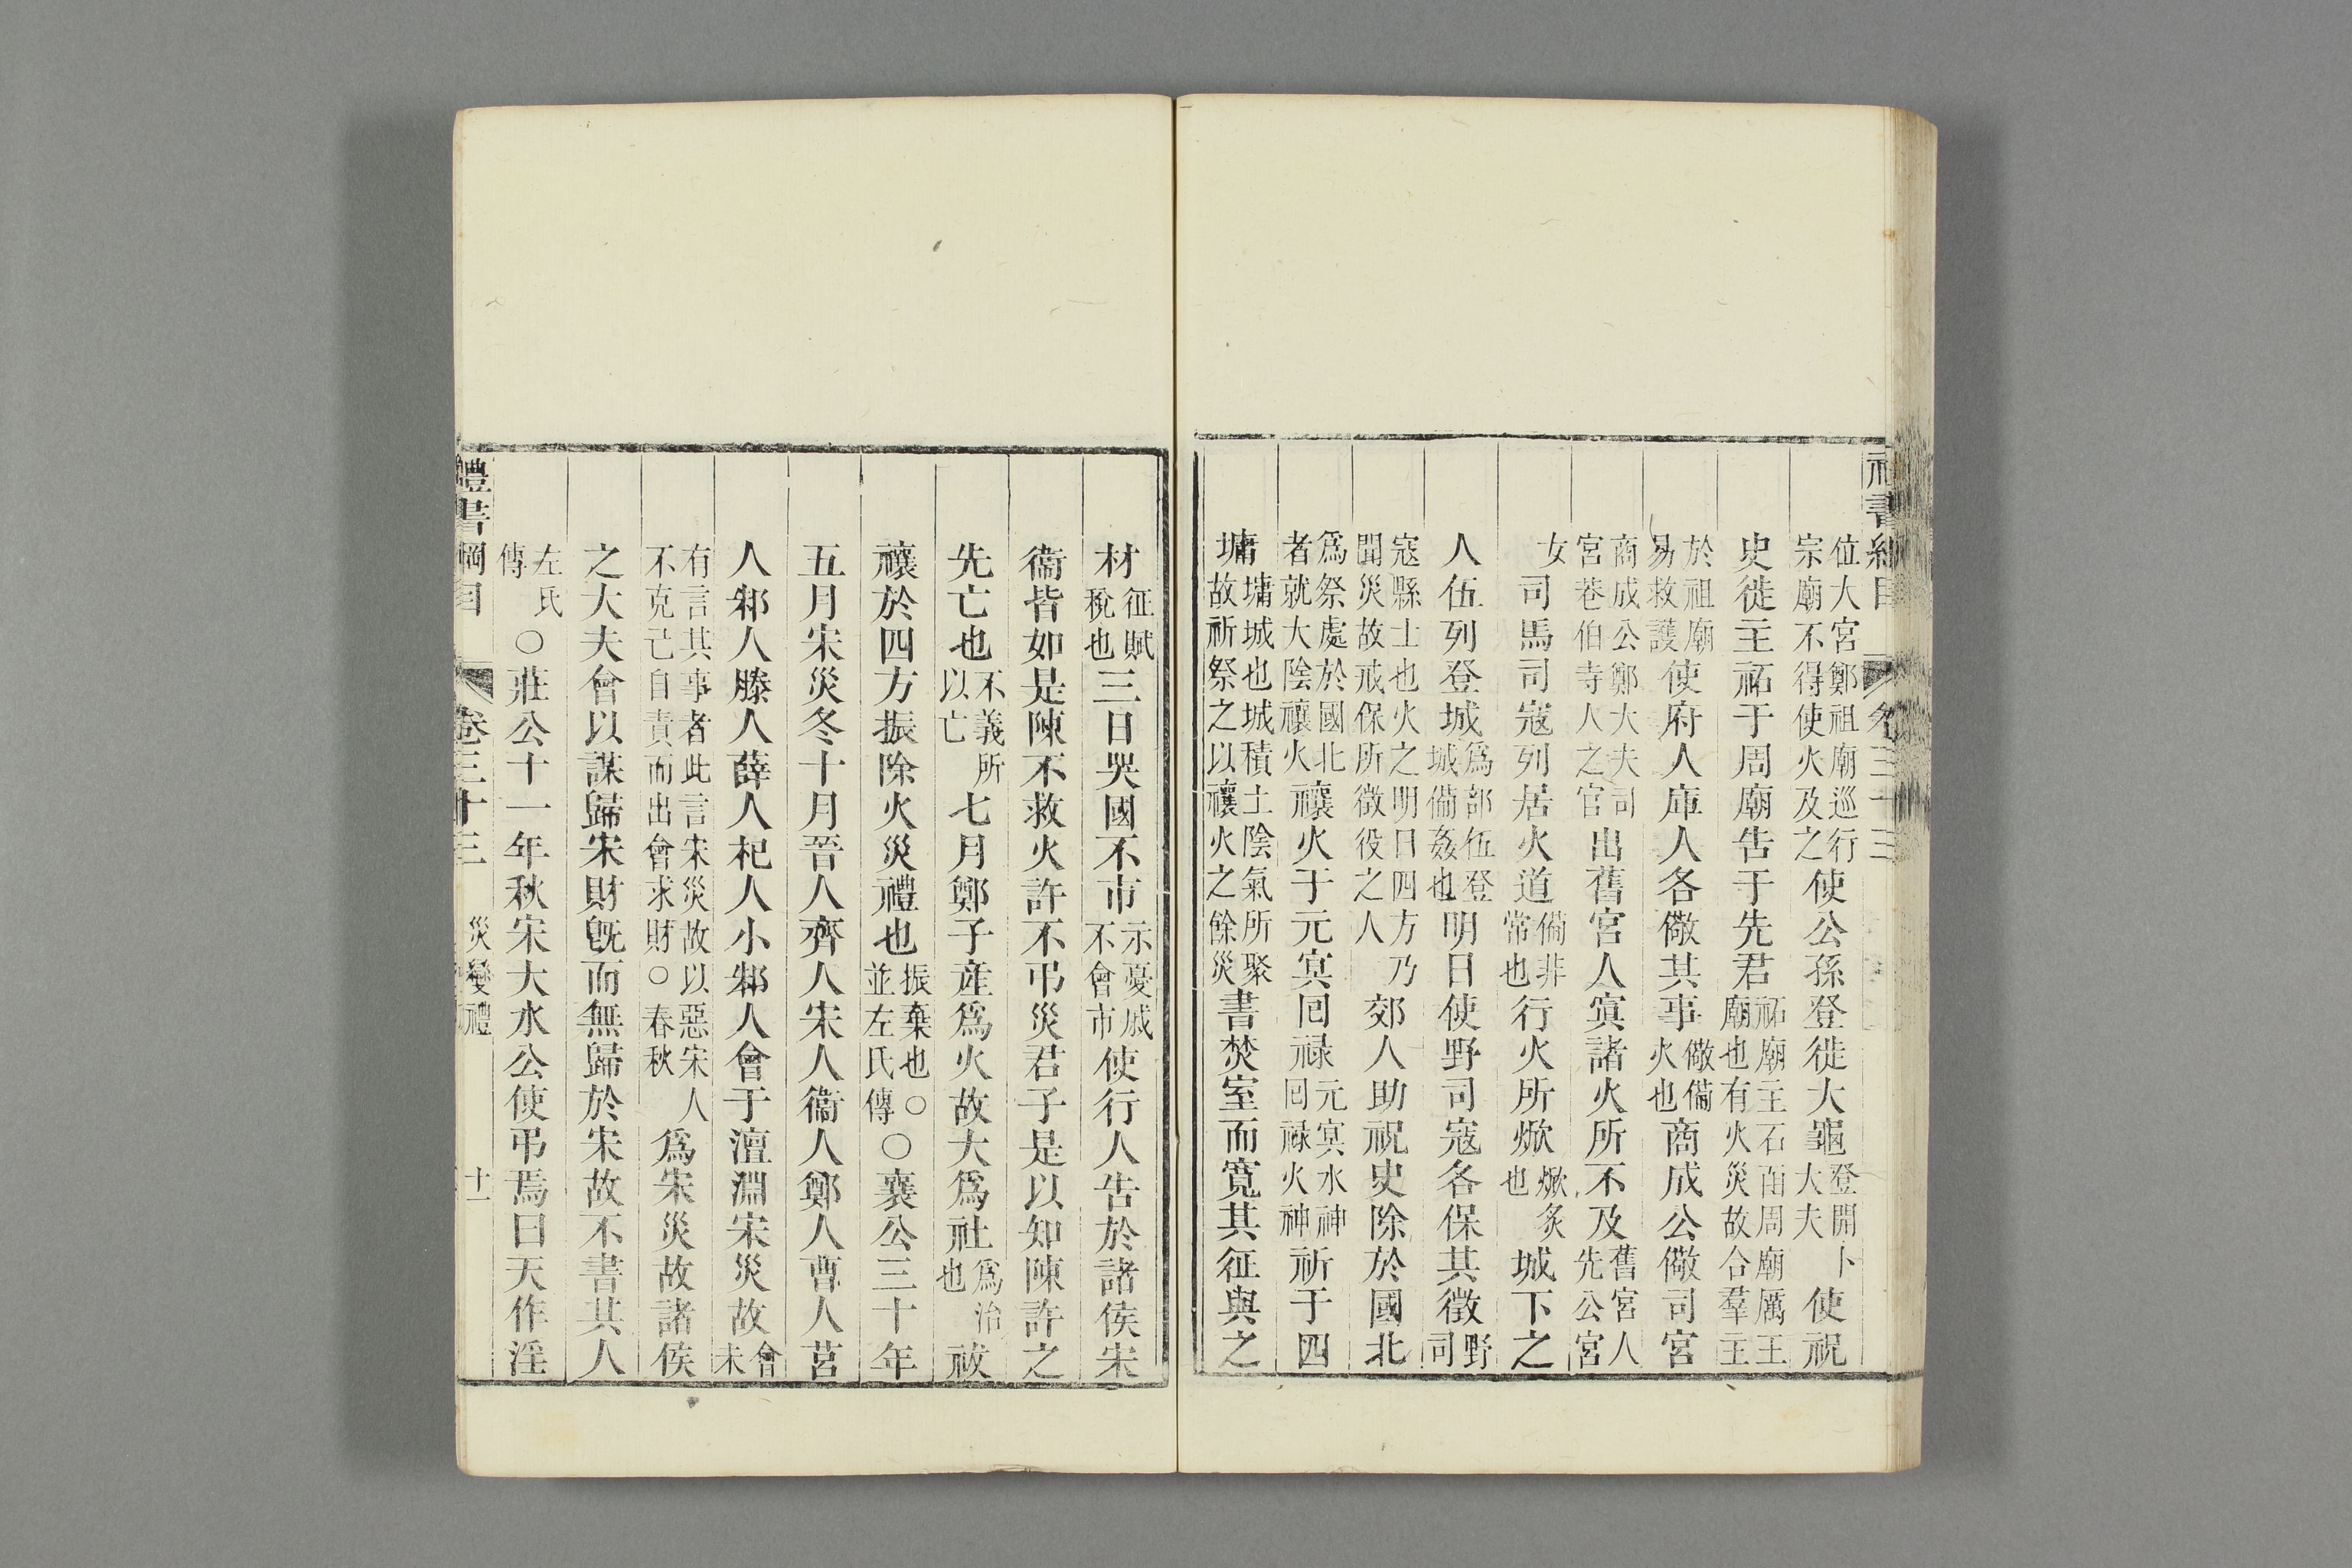 禮書綱目　卷三十三
位大宮鄭祖廟巡行宗廟不得使火及之使公孫登徙大龜登開卜大夫使祝
史徙主祏于周廟告于先君祏廟主石函周廟厲王廟也有火災故合羣主
於祖廟易救護使府人庫人各儆其事儆備火也商成公儆司宮
商成公鄭大夫司宮巷伯寺人之官出舊宮人寘諸火所不及舊宮人先公宮
女司馬司寇列居火道備非常也行火所焮焮炙也城下之
人伍列登城爲部伍登城備姦也明日使野司寇各保其徵野司
寇縣士也火之明日四方乃聞災故戒保所徵役之人郊人助祝史除於國北
爲祭處於國北者就大陰禳火禳火于元冥回祿元冥水神回祿火神祈于四
墉墉城也城積土陰氣所聚故祈祭之以禳火之餘災書焚室而寬其征與之
材征賦稅也三日哭國不市示憂戚不會市使行人告於諸侯宋
衞皆如是陳不救火許不弔災君子是以知陳許之
先亡也不義所以亡七月鄭子產爲火故大爲社爲治也祓
禳於四方振除火災禮也振棄也○並左氏傳○襄公三十年
五月宋災冬十月晉人齊人宋人衞人鄭人曹人莒
人邾人滕人薛人杞人小邾人會于澶淵宋災故會未
有言其事者此言宋災故以惡宋人不克己自責而出會求財○春秋爲宋災故諸侯
之大夫會以謀歸宋財旣而無歸於宋故不書其人
左氏傳○莊公十一年秋宋大水公使弔焉曰天作淫
禮書綱目　卷三十三　災變禮　十一